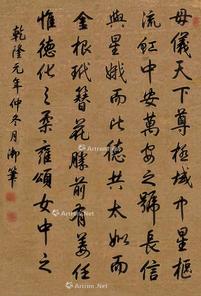 母儀天下尊極域中星樞
流虹中安萬安之號長信
與星娥而比德共太姒而
金根玳簪花勝前有姜任
惟德化之柔雍頌女中之
乾隆元年仲冬月御筆